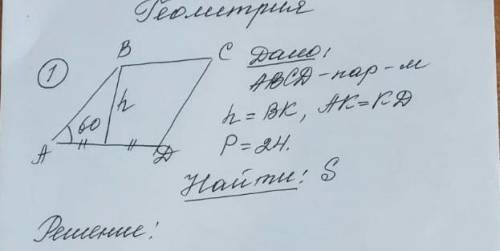 Геометрия
① B C Дано:
ABCD - пар-м
h = BK, AK=KD
h
60
A D P=24.
Найти: S
Решение: